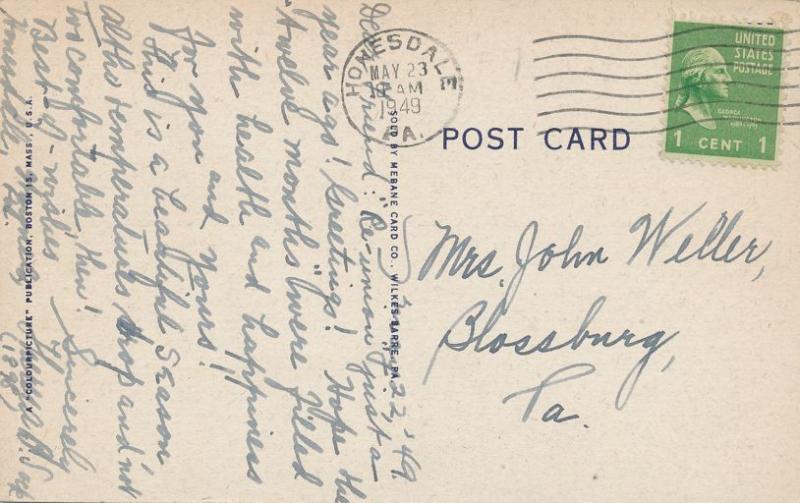 HONESDALE
MAY 23
AM
1949
PA.
UNITED
STATES
POSTAGE
GEORGE
WASHINGTON
1 CENT 1
POST CARD
SOLD BY MEBANE CARD CO., WILKES-BARRE, PA.
A "COLOURPICTURE" PUBLICATION, BOSTON 15, MASS., U.S.A.
22, '49.
Dear Friend: "Re-union" just a
year ago! Greetings! Hope the
"twelve months" were filled
with health and happiness
for you and yours!
This is a beautiful season,
altho temperatures drop and not
too comfortable, then! Sincerely
Best o'-wishes
Pa.
Mrs. John Weller,
Blossburg,
Pa.